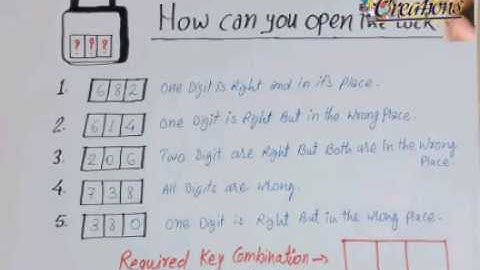 Creations
How can you open the Lock
? ? ?
1. 6 8 2 One Digit is Right and in its Place.
2. 6 1 4 One Digit is Right But in the Wrong Place.
3. 2 0 6 Two Digit are Right But Both are in the Wrong
Place.
4. 7 3 8 All Digits are wrong.
5. 3 8 0 One Digit is Right But in the wrong Place.
Required Key Combination →